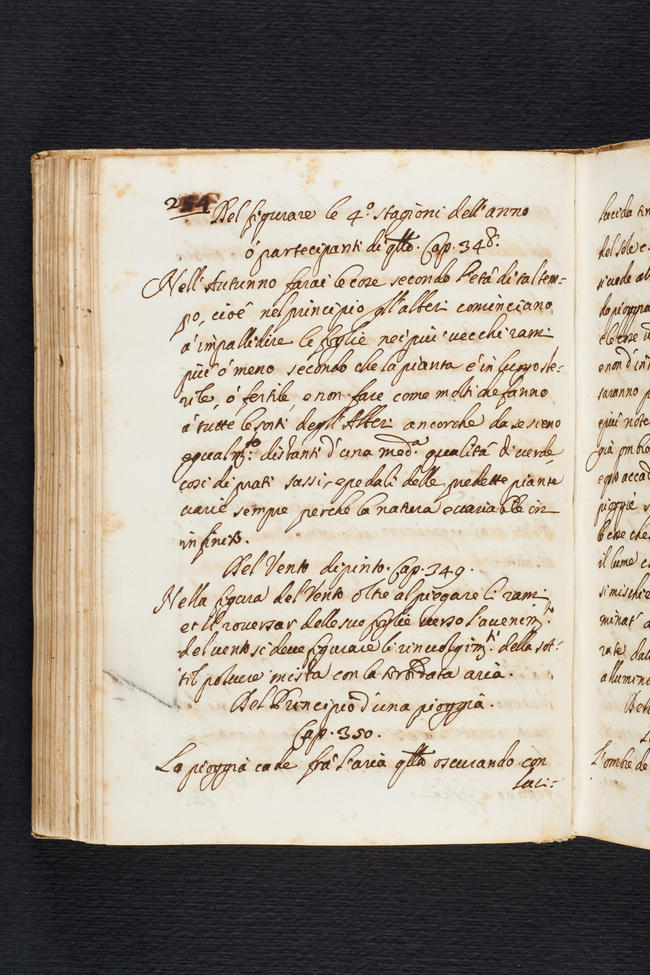 254
Del figurare le 4.º stagioni dell'anno
ò partecipanti di q̃lle. Cap. 348.
Nell'Autunno farai le cose secondo l'età di tal tem=
po, cioè nel principio gl'alberi cominciano
à impallidire le foglie nei più vecchi rami
più ò meno secondo che la pianta è in luogo ste=
rile, ò fertile, e non fare come molti che fanno
à tutte le sorti degli Alberi ancorche da se sieno
egualm.te distanti d'una med.a qualità di verde
cosi di prati sassi, e pedali delle predette piante
varie sempre perche la natura è variabile in
infinito.
Del Vento dipinto. Cap. 349.
Nella figura del Vento oltre al piegare li rami
et il roversar delle sue foglie verso l'avenim.to
del vento si deve figurare li rivuolgim.ti della sot=
til polvere mista con la torbidata aria.
Del Principio d'una pioggia.
Cap. 350.
La pioggia cade frà l'aria q̃lla oscurando con
luci=
lucida
del sole e
si vede
di pioggia
e non d'in
saranno
e più note
già
pioggie
il lume
si mischi
minat'
rate dal
allumina
L'ombre de